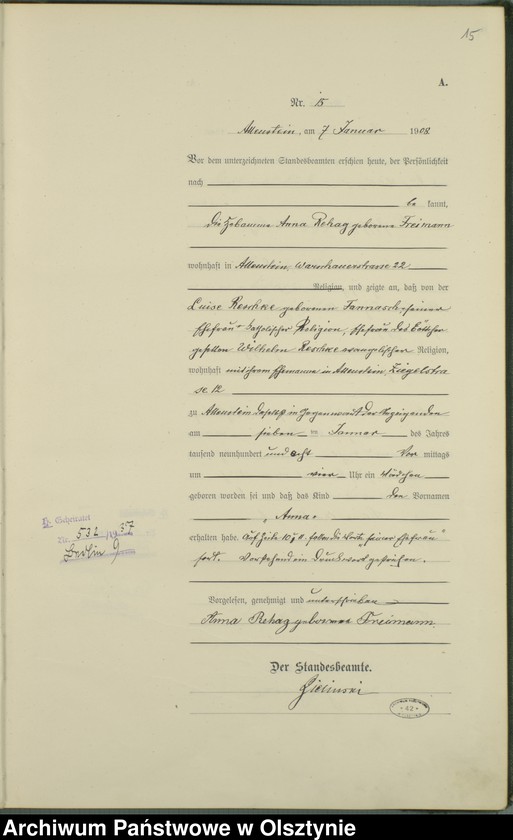 15
A.
Nr. 15
Allenstein, am 7 Januar 1908
Vor dem unterzeichneten Standesbeamten erschien heute, der Persönlichkeit
nach
be kannt,
die Hebamme Anna Rehag geborene Freimann
wohnhaft in Allenstein, Warschauerstrasse 22
Religion, und zeigte an, daß von der
Luise Reschke geborenen Tannasch, seiner
Ehefrau katholischer Religion, Ehefrau des Böttcher
gesellen Wilhelm Reschke evangelischer Religion,
wohnhaft mit ihrem Ehemanne in Allenstein, Ziegelstra
sse 12
zu Allenstein daselbst in Gegenwart der Anzeigenden
am sieben ten Januar des Jahres
tausend neunhundert und acht Vor mittags
um vier Uhr ein Mädchen
geboren worden sei und daß das Kind den Vornamen
"Anna"
erhalten habe. Auf Zeile 10 u. 11 fallen die Worte "seiner Ehefrau"
fort. Vorstehend ein Druckwort gestrichen.
Vorgelesen, genehmigt und unterschrieben
Anna Rehag geborene Freimann.
Der Standesbeamte.
Zielinski
Geheiratet
Nr. 532 1937
Berlin 9
42
Archiwum Państwowe w Olsztynie